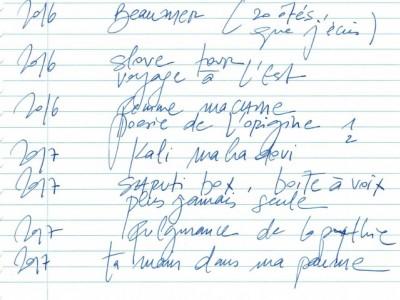 2016 Beaumer (20 étés,
que j'écris)
2016 slave tour
voyage à l'Est
2016 femme macume
poésie de l'origine 1
2
2017 Kali maha devi
2017 box, boîte à voix
plus jamais seule
2017 fulgurance de la pythie
2017 ta main dans ma paume